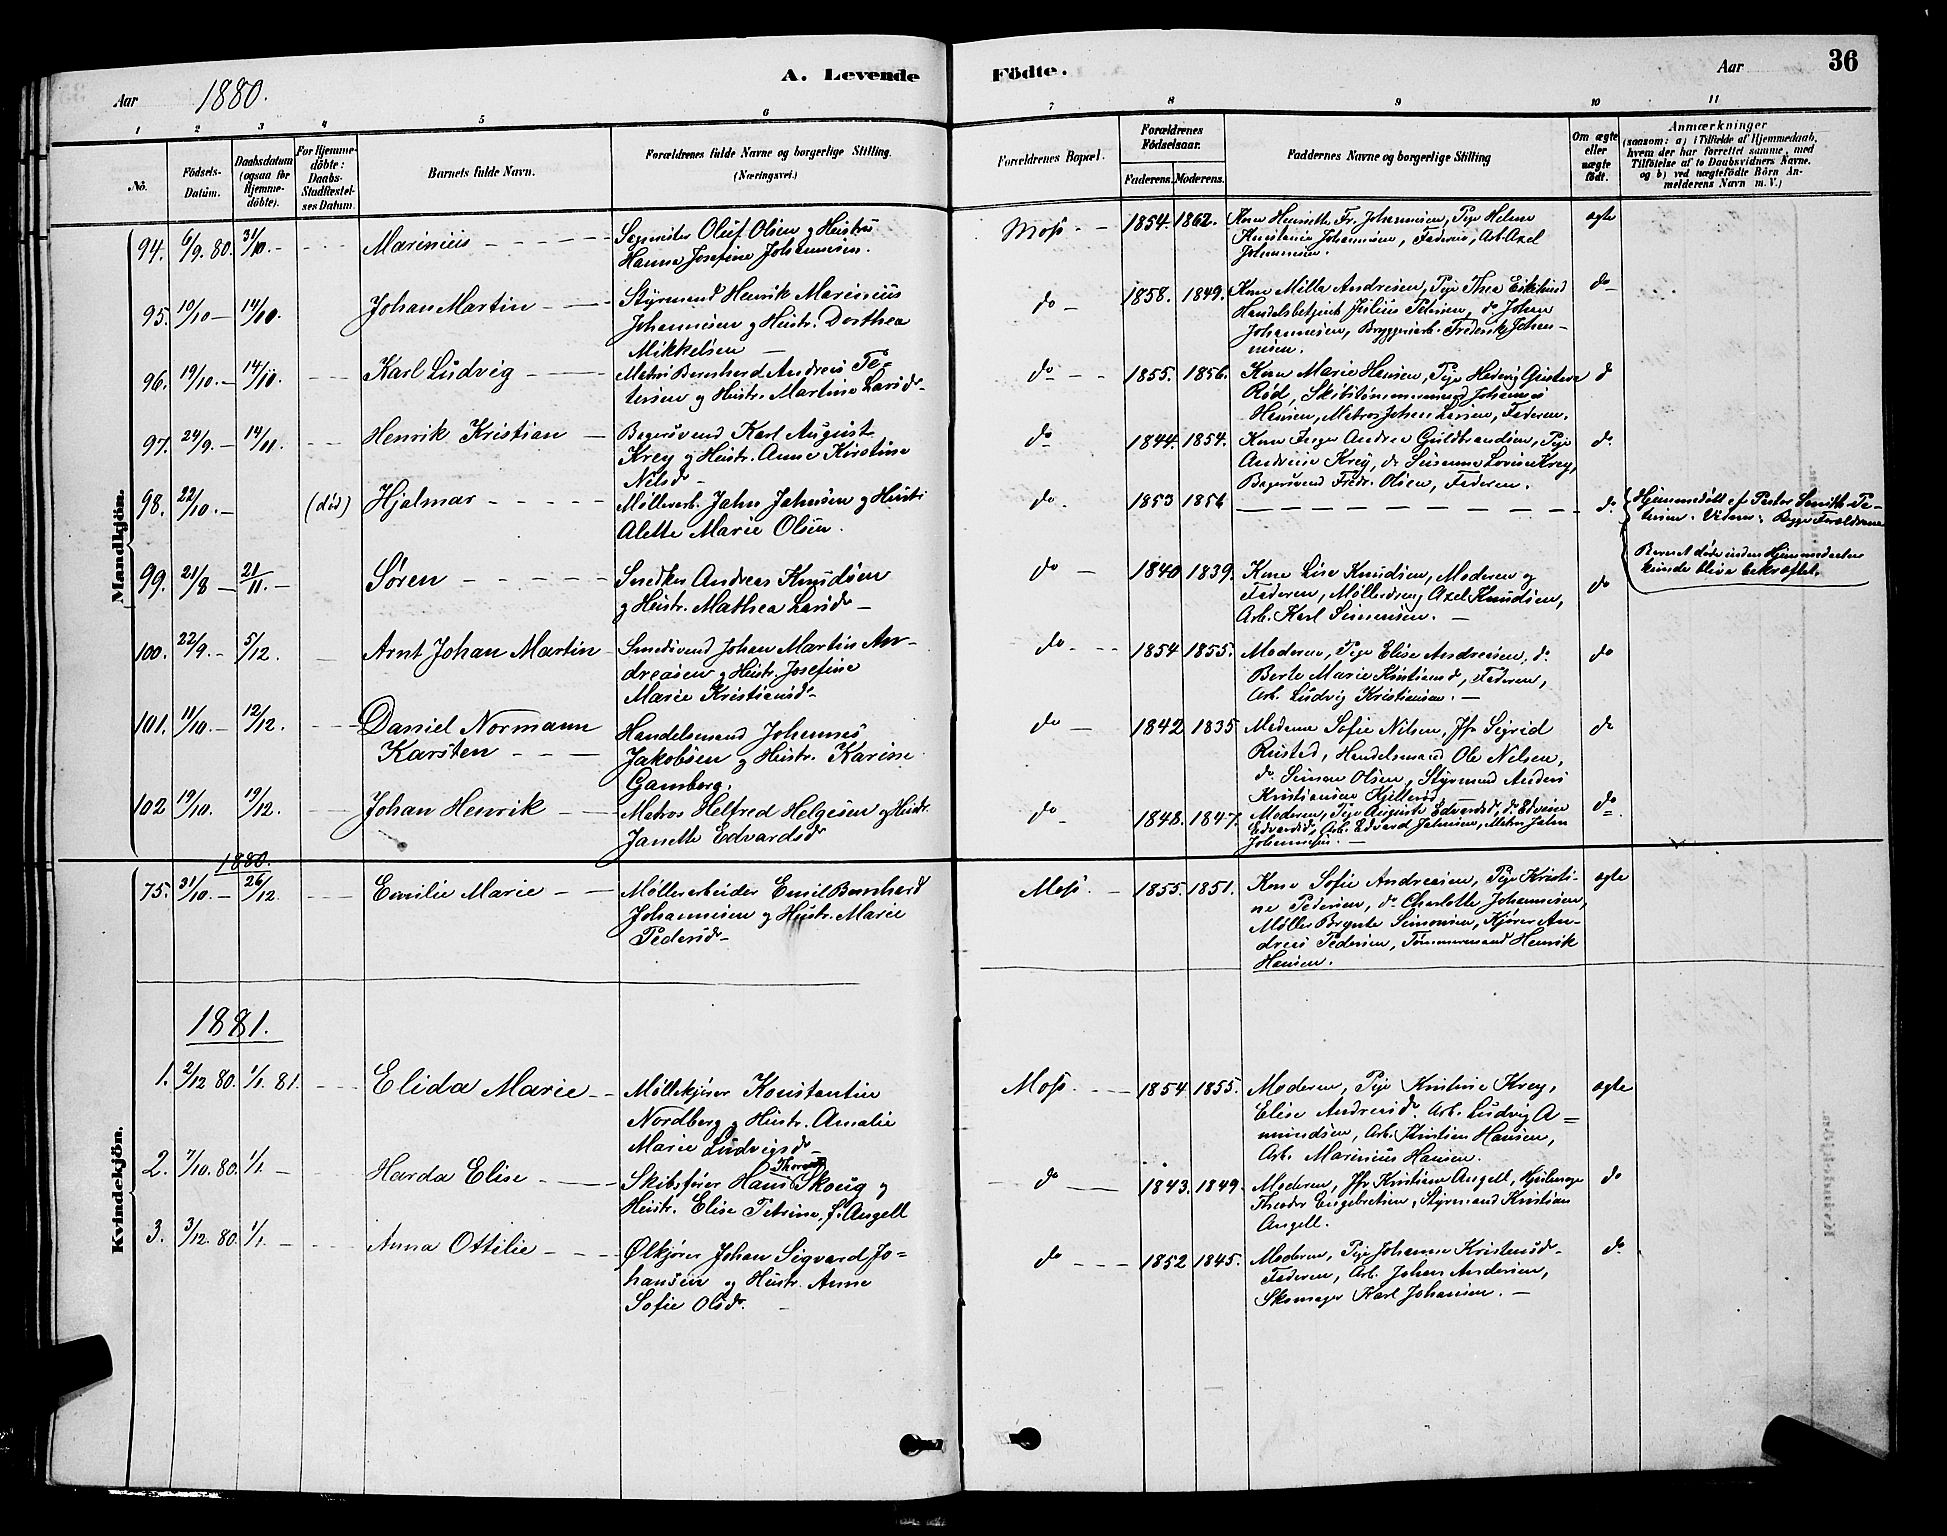 A. Levende Födte.
Aar 1880.
Aar 36
1 2 3 4 5 6 7 8 9 10 11
No.
Födsels-Datum.
Daabsdatum (ogsaa for Hjemme-döbte).
For Hjemme-döbte: Daabs-Stadfæstel-ses Datum.
Barnets fulde Navn.
Forældrenes fulde Navne og borgerlige Stilling.
(Næringsvei.)
Forældrenes Bopæl.
Forældrenes Födselsaar.
Faderens. Moderens.
Faddernes Navne og borgerlige Stilling
Om ægte eller uægte födt.
Anmærkninger
(saasom: a) i Tilfælde af Hjemmedaab,
hvem der har forrettet samme, med
Tilföielse af to Daabsvidners Navne.
og b) ved uægtefödte Börn An-
melderens Navn m. V.)
Mandkjön.
94. 6/9. 80. 31/10. - Marinius - Oluf Olsen og Hustru
Hanna Josefine Johannesen.
Moss - 1854. 1862. Kone Henriette Fr. Johannesen, Pige Helene
Johannesen, Faderen, Arb. Axel
Johannesen.
ægte
95. 10/10 - 14/10. Johan Martin - Styrmand Henrik Marinius
Johannesen og Hustr. Dorthea
Mikkelsen -
do - 1858. 1849. Kone Milla Andresen, Pige Thea
Handelsbetjent Julius Petersen, do Johan
Johannesen, Bryggeriarb. Frederik Johan-
nesen.
do
96. 19/10. - 14/11. Karl Ludvig - Matros Bernhard Andreas Pe-
tersen og Hustr. Martine Larsdr.
do - 1855. 1856. Kone Marie Hansen, Pige Hedvig Gustava
Rød, Skibstømmermand Johannes
Hansen, Matros Johan Larsen, Faderen.
d
97. 24/9. - 14/11. Henrik Kristian - Bagersvend Karl August
Krey og Hustr. Anne Kirstine
Nilsdr -
do 1844. 1854. Kone Inger Andrea Guldbrandsen, Pige
Andrine Krey, do Susanne Lovise Krey,
Bagersvend Fredr. Olsen, Faderen.
do.
98. 22/10. - (död) Hjalmar - Møllerarb. Jahn Jahnsen og Hustr.
Alette Marie Olsen.
do. 1853 1856 do.
Hjemmedøbt af Pastor Smith Pe-
tersen. Vidner: Begge Forældrene
Barnet døde inden Hjemmedaaben
kunde blive bekræftet.
99. 21/8 - 21/11. - Søren - Snedker Andreas Knudsen
og Hustr. Mathea Larsdr -
do - 1840 1839. Kone Lise Knudsen, Moderen og
Faderen, Mølledreng Axel Knudsen,
Arb. Karl Simensen. -
do
100. 22/9. - 5/12. Arnt Johan Martin - Smedsvend Johan Martin An-
dreasen og Hustr. Josefine
Marie Kristiansdr -
do - 1854 1855. Moderen, Pige Elise Andreasen, do.
Berte Marie Kristiansd, Faderen,
Arb. Ludvig Kristiansen. -
do
101. 11/10. - 12/12. Daniel Normann
Karsten - Handelsmand Johannes
Jakobsen og Hustr. Karine
Gamberg.
do - 1842 1835 Madame Sofie Nilsen, Jfr Sigrid
Rusted, Handelsmand Ole Nilsen,
do. Simon Olsen, Styrmand Anders
Kristiansen Hjellerød
do
102 19/10. 19/12. Johan Henrik - Matros Helfred Helgesen og Hustr.
Janette Edvardsdr
do - 1848. 1847. Moderen, Pige Auguste Edvardsd, do Edvine
Edvardsd, Arb. Edvard Jahnsen, Matros Jahn
Johannesen. -
do
Kvindekjön.
1880.
75. 31/10. - 26/12. Emilie Marie - Møllerarbeider Emil Bernhard
Johannesen og Hustr. Marie
Pedersdr -
Moss. - 1855. 1851. Kone Sofie Andreasen, Pige Kristi-
ne Pedersen, do. Charlotte Johannesen,
Møller Brynte Simonsen, Kjører An-
dreas Pedersen, Tømmermand Henrik
Hansen.
ægte
1881.
1. 2/12 80. 1/1. 81. Elida Marie - Møllekjører Konstantin
Nordberg og Hustr. Amalie
Marie Ludvigsdr -
Moss. - 1854 1855. Moderen, Pige Kristine Krey,
Elise Andreasdr. Arb. Ludvig A-
mundsen, Arb. Kristian Hansen,
Arb. Marinius Hansen.
ægte
2. 7/10. 80. 1/1. - Harda Elise - Skibsfører Hans Skoug og
Hustr. Elise Petrine f. Angell
do - 1843. 1849. Moderen, Jfr Kristine Angell,
Theodor Engebretsen, Styrmand Kristian
Angell.
do
3. 3/12. 80. 1/1. - Anna Ottilie - Ølkjører Johan Sigvard Jo-
hansen og Hustr. Anne
Sofie Olsdr. -
do - 1852 1845. Moderen, Pige Johanne Kristensdr -
Faderen, Arb. Johan Andersen,
Skomager Karl Johansen. -
do.